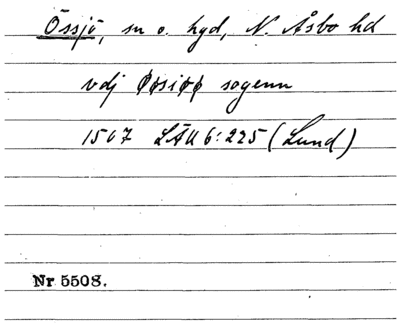 Össjö, sn o. hgd, N. Åsbo hd
vdj Øøsiøø sogenn
1507 LÄU 6:225 (Lund)
Nr 5508.